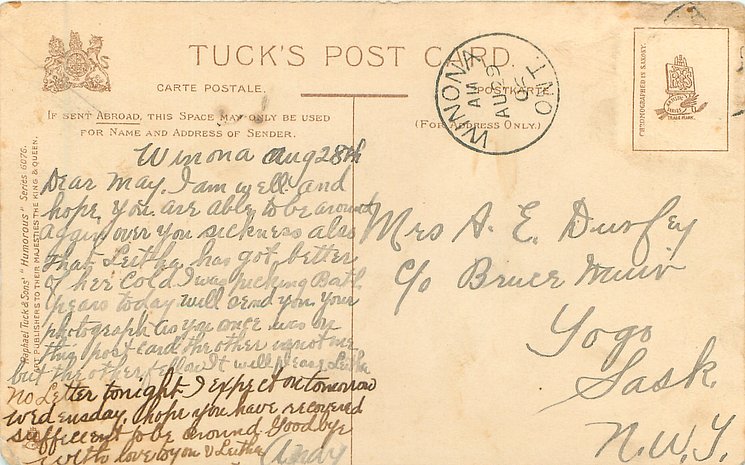 TUCK'S POST CARD.
CARTE POSTALE.
POSTKARTE.
IF SENT ABROAD, THIS SPACE MAY ONLY BE USED
FOR NAME AND ADDRESS OF SENDER.
(FOR ADDRESS ONLY.)
WINONA
AM
AU 29
ONT
CHROMOGRAPHED IN SAXONY.
TRADE MARK.
Raphael Tuck & Sons' "Humorous" Series 6076.
ART PUBLISHERS TO THEIR MAJESTIES THE KING & QUEEN.
Winona Aug 28th
Dear May. I am well and
hope you are able to be around
again over you sickness also
that Leitha has got better
of her cold I was picking Bath
pears today will send you your
photograph as you once was by
this post card the other is not me
but the other fellow It will please Leitha
No Letter tonight I expect on tomorrow
wednesday, I hope you have recovered
sufficient to be around Goodbye
with love to you & Leitha Andy
Mrs A. E. Durfey
c/o Bruce Muir
Yogo
Sask.
N.W.T.